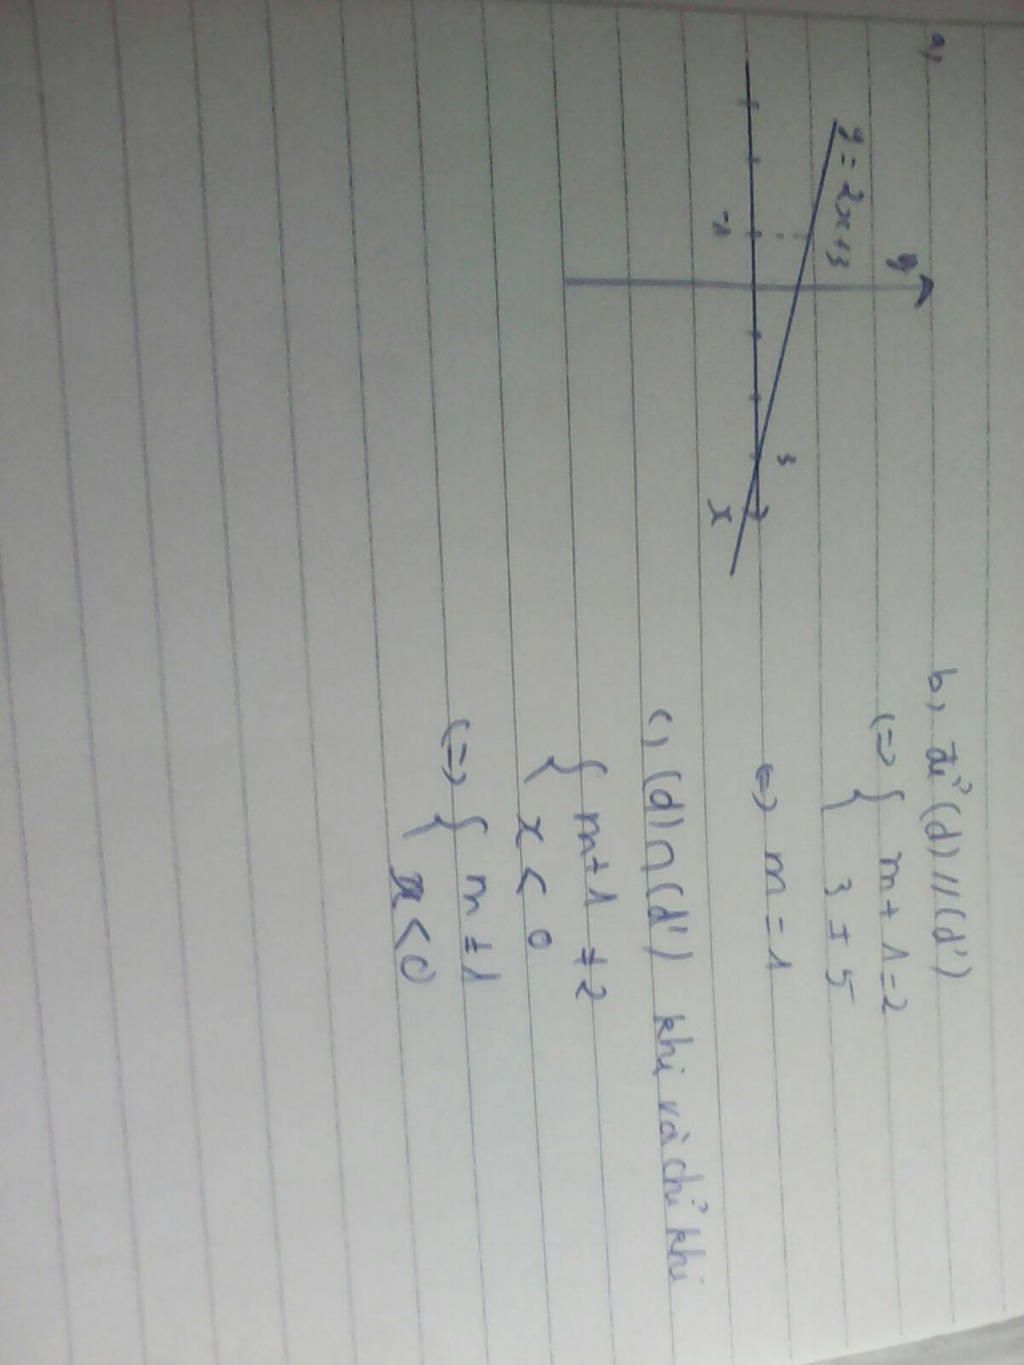 a,
y
y = 2x+3
3
-1
x
b, để (d) // (d')
(=> { m+1=2
3 ≠ 5
(=> m = 1
c, (d) ∩ (d') khi và chỉ khi
{ m+1 ≠ 2
x < 0
(=> { m ≠ 1
x < 0